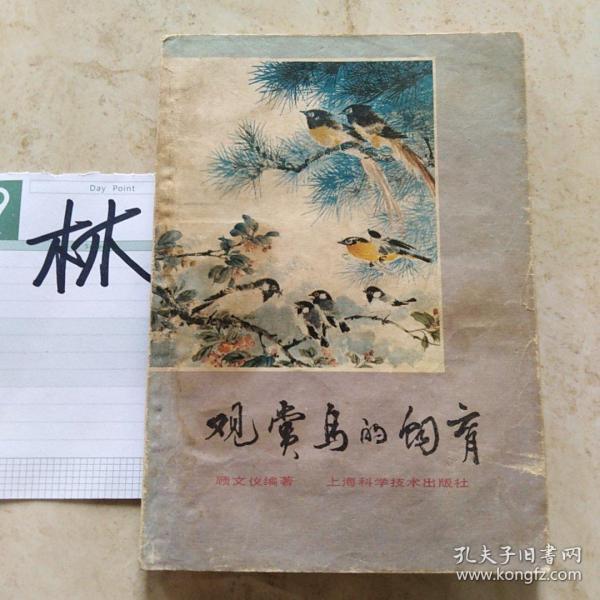 Day Point
林
观赏鸟的饲育
顾文仪编著 上海科学技术出版社
孔夫子旧书网
www.kongfz.com